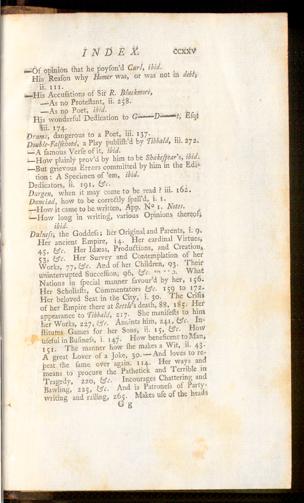 INDEX. ccxxv
—Of opinion that he poyson'd Curl, ibid.
His Reason why Homer was, or was not in debt,
ii. 111.
—His Accusations of Sir R. Blackmore,
—As no Protestant, ii. 258.
—As no Poet, ibid.
His wonderful Dedication to G—D—t, Esq;
iii. 174.
Drums, dangerous to a Poet, iii. 137.
Double-Falsehood, a Play publish'd by Tibbald, iii. 272.
—A famous Verse of it, ibid.
—How plainly prov'd by him to be Shakespear's, ibid.
—But grievous Errors committed by him in the Edi-
tion: A Specimen of 'em, ibid.
Dedicators, ii. 191, &c.
Durgen, when it may come to be read? iii. 162.
Dunciad, how to be correctly spell'd, i. 1.
—How it came to be written, App. No 1. Notes.
—How long in writing, various Opinions thereof,
ibid.
Dulness, the Goddess; her Original and Parents, i. 9.
Her ancient Empire, 14. Her cardinal Virtues,
45, &c. Her Ideas, Productions, and Creation,
53, &c. Her Survey and Contemplation of her
Works, 77, &c. And of her Children, 93. Their
uninterrupted Succession, 96, &c. What
Nations in special manner favour'd by her, 156.
Her Scholiasts, Commentators &c. 159 to 172.
Her beloved Seat in the City, i. 30. The Crisis
of her Empire there at Settle's death, 88, 185. Her
appearance to Tibbald, 217. She manifests to him
her Works, 227, &c. Anoints him, 241, &c. In-
stitutes Games for her Sons, ii. 15, &c. How
useful in Business, i. 147. How beneficent to Man,
151. The manner how she makes a Wit, ii. 43.
A great Lover of a Joke, 30.—And loves to re-
peat the same over again. 114. Her ways and
means to procure the Pathetick and Terrible in
Tragedy, 220, &c. Incourages Chattering and
Bawling, 225, &c. And is Patroness of Party-
writing and railing, 265. Makes use of the heads
G g